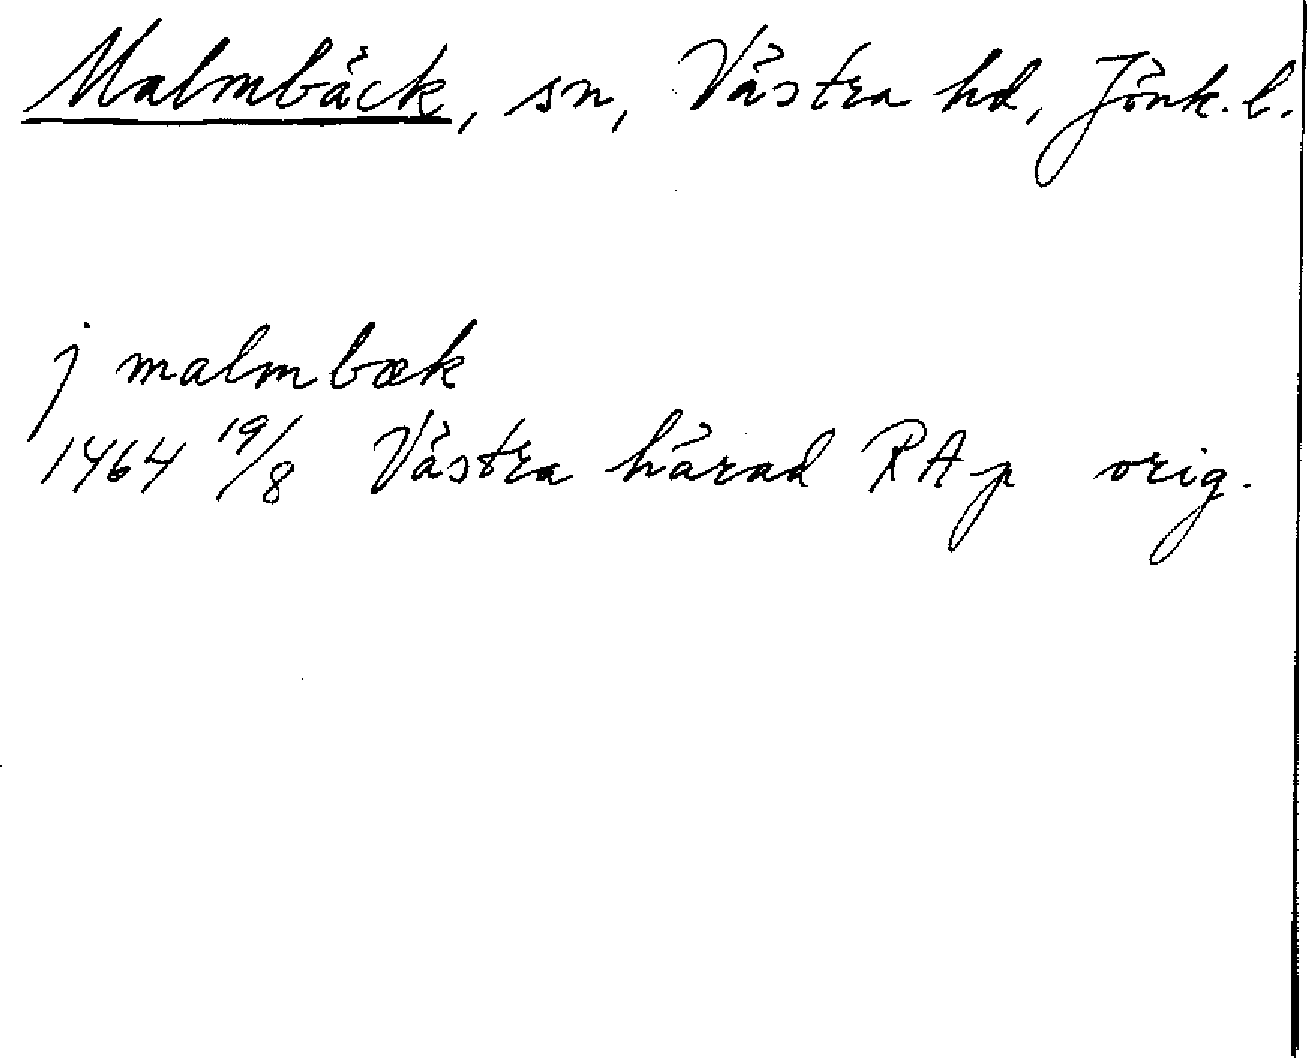 Malmbäck, sn, Västra hd, Jönk. l.
j malmbæk
1464 19/8 Västra härad RAp orig.